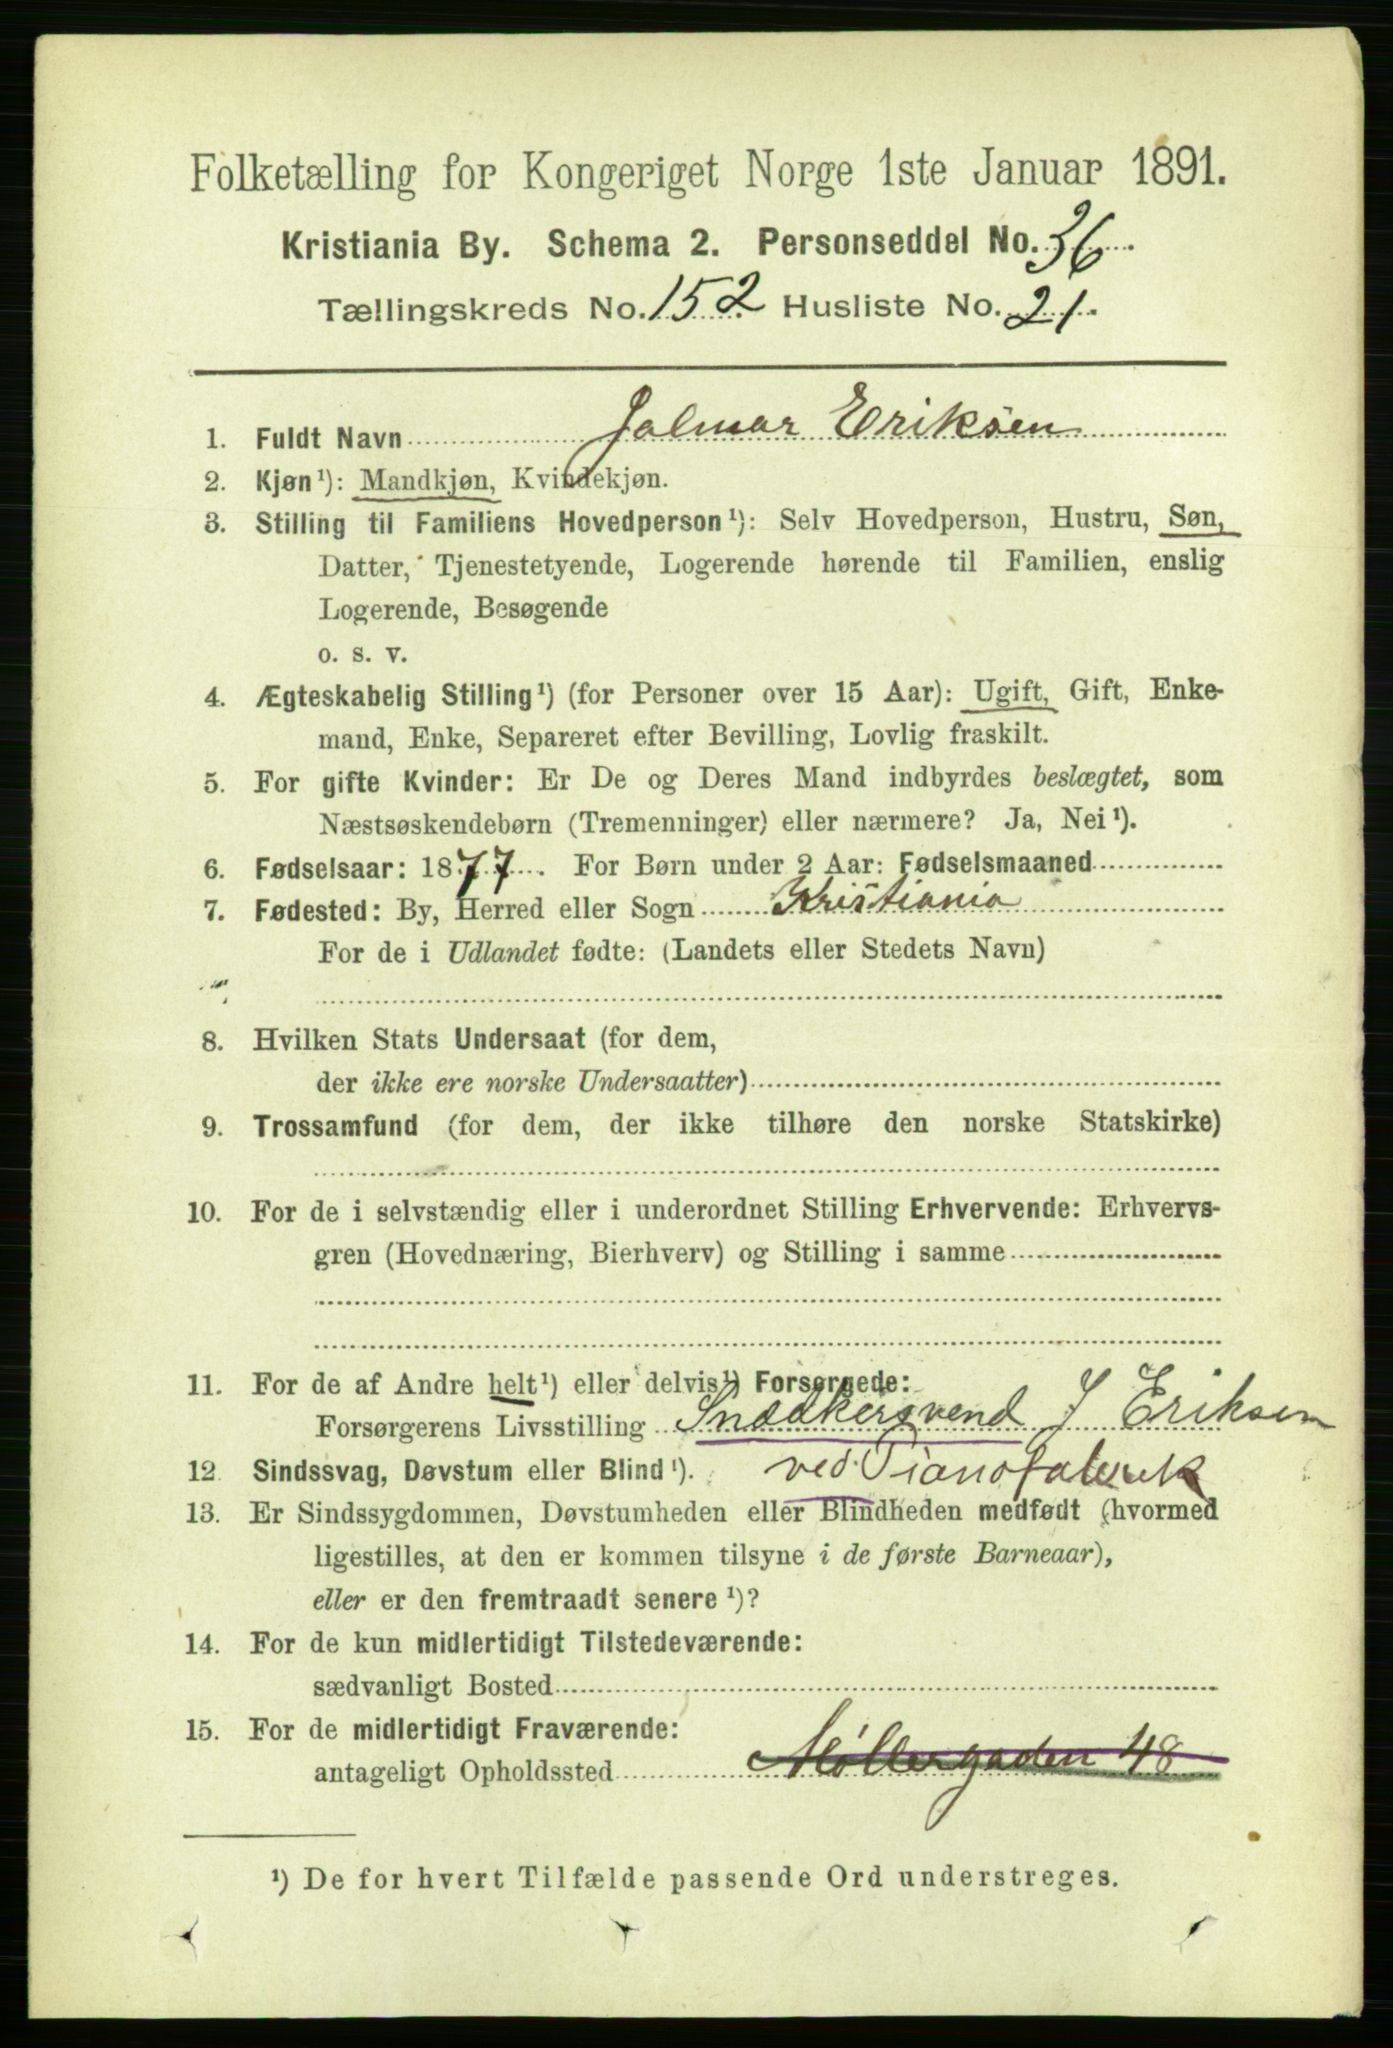 Folketælling for Kongeriget Norge 1ste Januar 1891.
Kristiania By. Schema 2. Personseddel No. 36.
Tællingskreds No. 152 Husliste No. 21.
1. Fuldt Navn Jalmar Eriksen
2. Kjøn¹): Mandkjøn, Kvindekjøn.
3. Stilling til Familiens Hovedperson¹): Selv Hovedperson, Hustru, Søn,
Datter, Tjenestetyende, Logerende hørende til Familien, enslig
Logerende, Besøgende
o. s. v.
4. Ægteskabelig Stilling¹) (for Personer over 15 Aar): Ugift, Gift, Enke-
mand, Enke, Separeret efter Bevilling, Lovlig fraskilt.
5. For gifte Kvinder: Er De og Deres Mand indbyrdes beslægtet, som
Næstsøskendebørn (Tremenninger) eller nærmere? Ja, Nei¹).
6. Fødselsaar: 1877. For Børn under 2 Aar: Fødselsmaaned
7. Fødested: By, Herred eller Sogn Kristiania
For de i Udlandet fødte: (Landets eller Stedets Navn)
8. Hvilken Stats Undersaat (for dem,
der ikke ere norske Undersaatter)
9. Trossamfund (for dem, der ikke tilhøre den norske Statskirke)
10. For de i selvstændig eller i underordnet Stilling Erhvervende: Erhvervs-
gren (Hovednæring, Bierhverv) og Stilling i samme
11. For de af Andre helt¹) eller delvis¹) Forsørgede:
Forsørgerens Livsstilling Snedkersvend J Eriksen
12. Sindssvag, Døvstum eller Blind¹). ved Pianofabrik
13. Er Sindssygdommen, Døvstumheden eller Blindheden medfødt (hvormed
ligestilles, at den er kommen tilsyne i de første Barneaar),
eller er den fremtraadt senere¹)?
14. For de kun midlertidigt Tilstedeværende:
sædvanligt Bosted
15. For de midlertidigt Fraværende:
antageligt Opholdssted Møllergaden 48
¹) De for hvert Tilfælde passende Ord understreges.